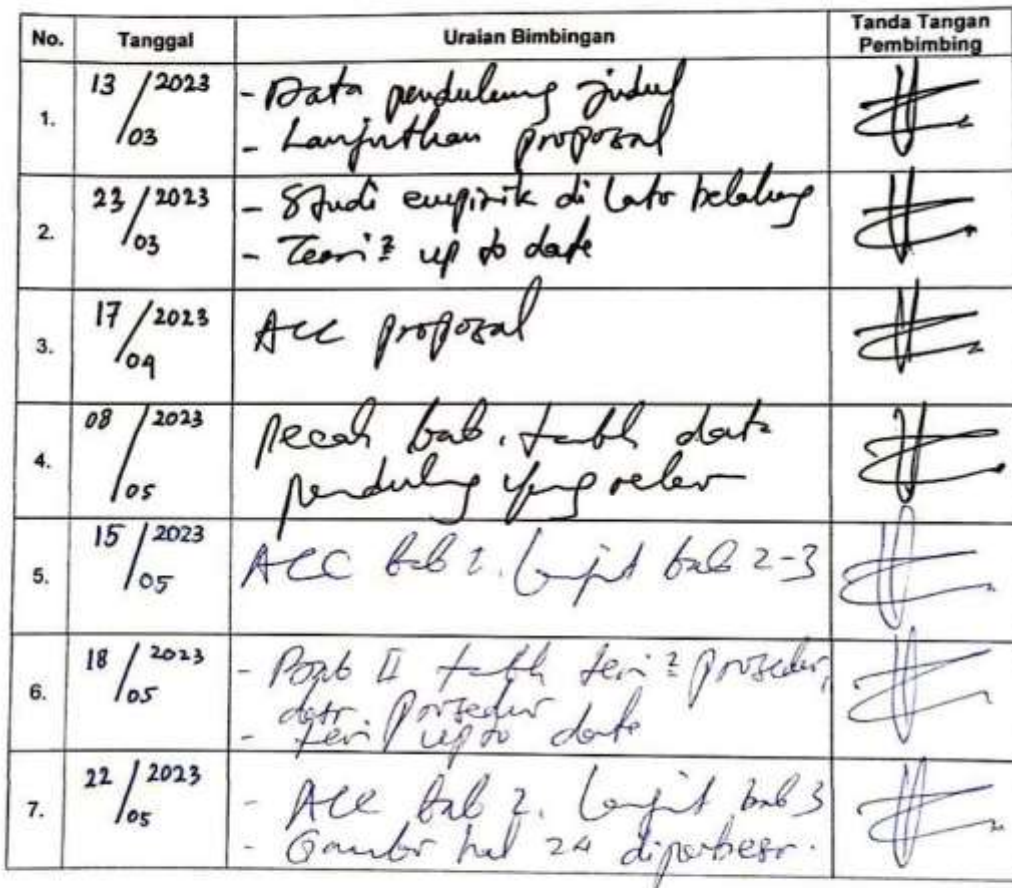 No. Tanggal Uraian Bimbingan Tanda Tangan
Pembimbing
1. 13/03 2023 - Data pendukung judul
- Lanjutkan proposal
2. 23/03 2023 - Studi empirik di latar belakang
- Teori² up to date
3. 17/04 2023 ACC proposal
4. 08/05 2023 Pecah bab. tambah data
pendukung yang relevan
5. 15/05 2023 ACC bab 1. Lanjut bab 2-3
6. 18/05 2023 - Bab II tambah teori² prosedur,
prosedur
- teori up to date
7. 22/05 2023 - ACC bab 2. Lanjut bab 3
- Gambar hal 24 diperbesar.